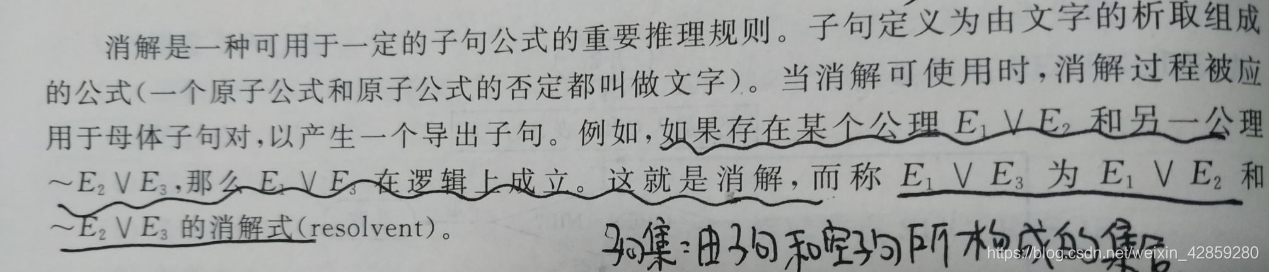 消解是一种可用于一定的子句公式的重要推理规则。子句定义为由文字的析取组成
的公式(一个原子公式和原子公式的否定都叫做文字)。当消解可使用时,消解过程被应
用于母体子句对,以产生一个导出子句。例如,如果存在某个公理 E₁ ∨ E₂ 和另一公理
～E₂ ∨ E₃,那么 E₁ ∨ E₃ 在逻辑上成立。这就是消解,而称 E₁ ∨ E₃ 为 E₁ ∨ E₂ 和
～E₂ ∨ E₃ 的消解式(resolvent)。
子句集:由子句和空子句所构成的集合
https://blog.csdn.net/weixin_42859280